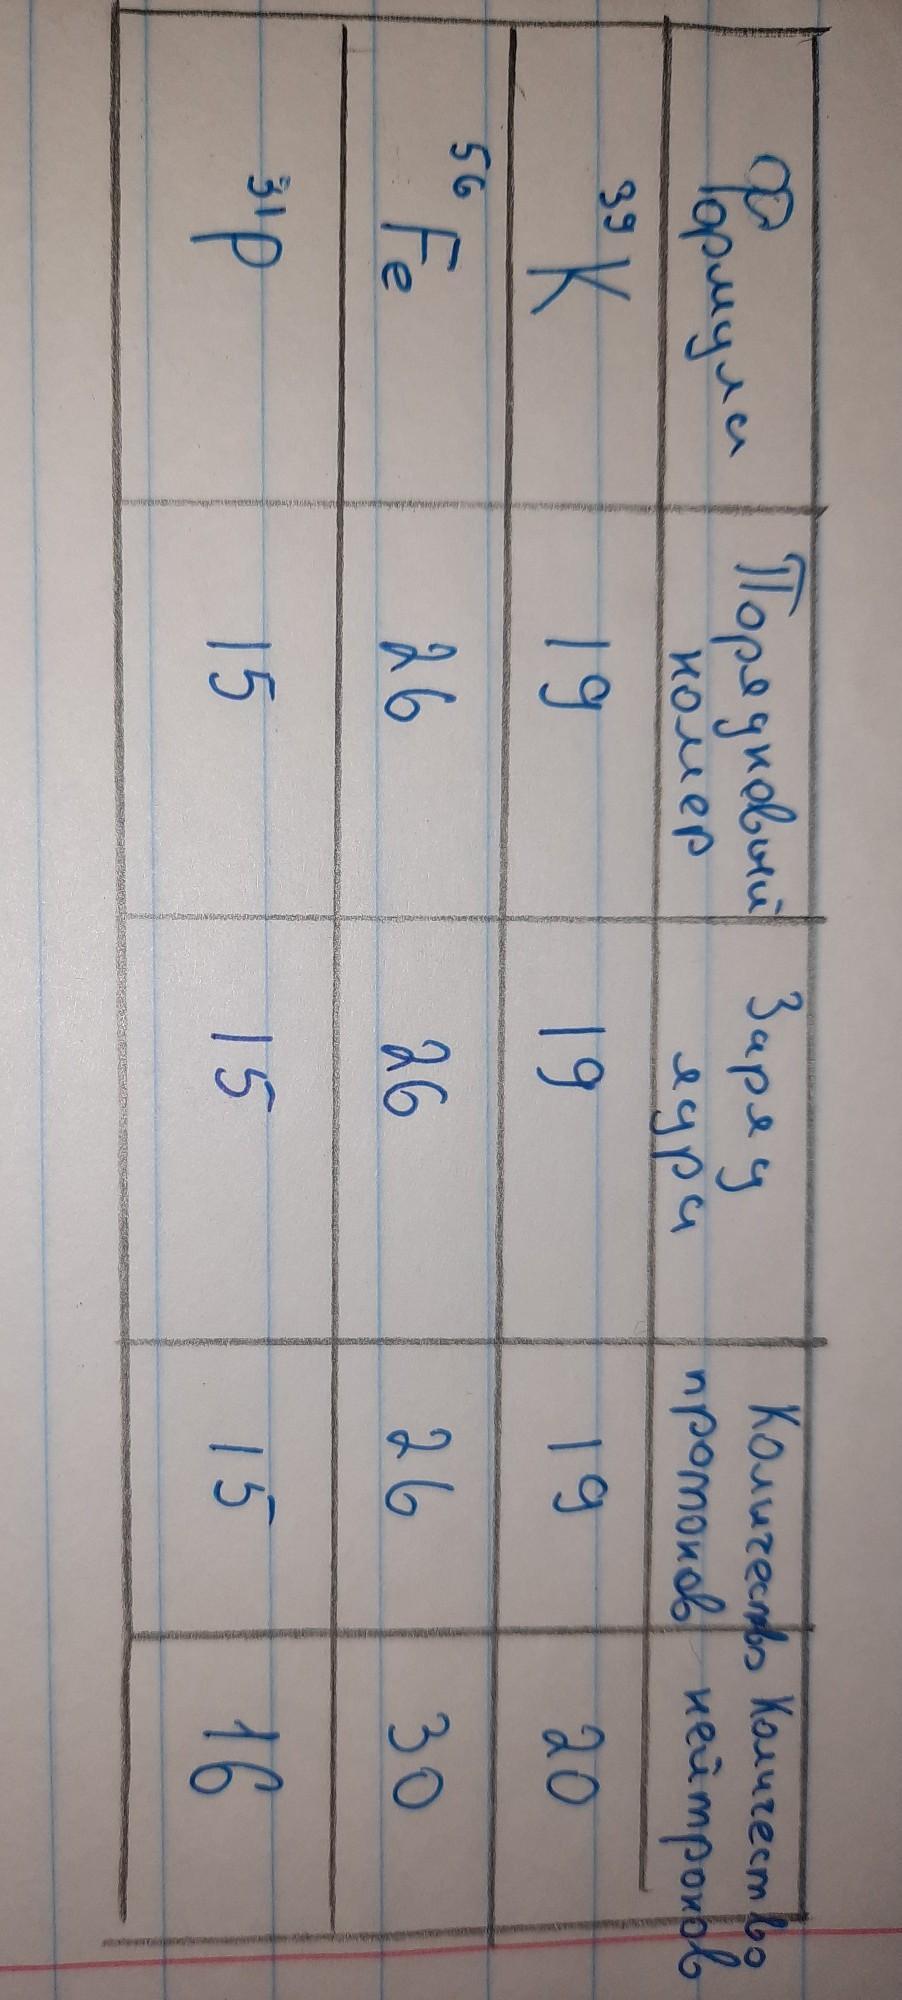 Формула Порядковый номер Заряд ядра Количество протонов Количество нейтронов
³⁹K 19 19 19 20
⁵⁶Fe 26 26 26 30
³¹P 15 15 15 16